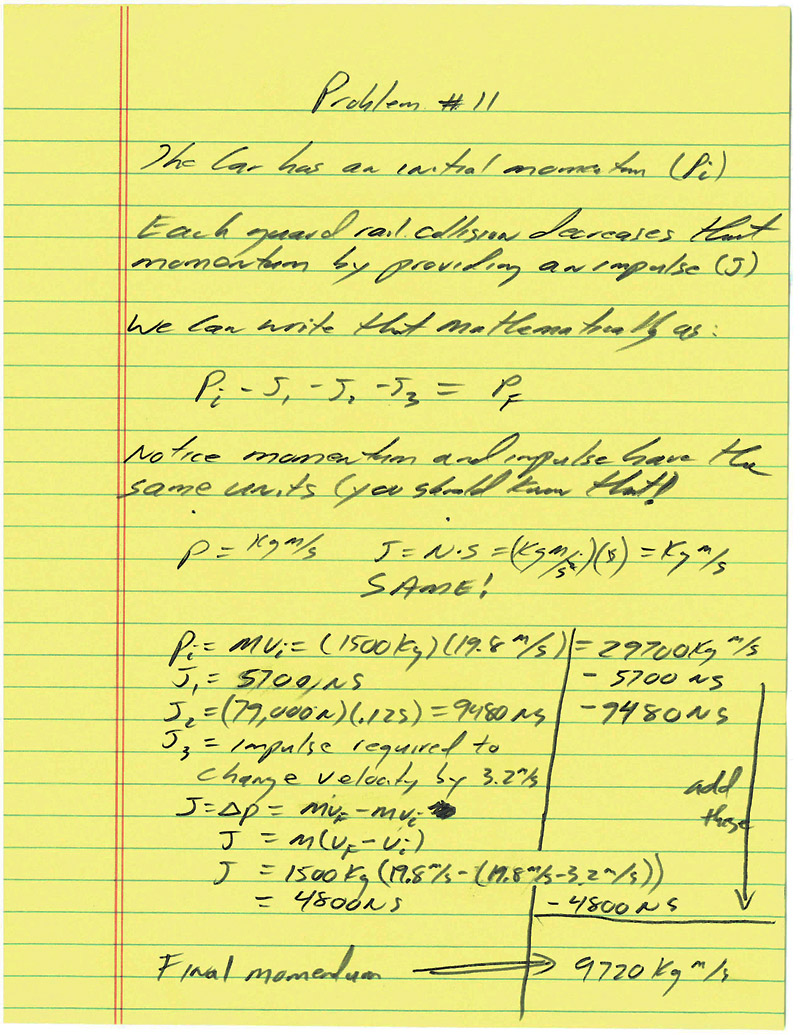 Problem #11
The Car has an initial momentum (Pi)
Each guard rail collision decreases that
momentum by providing an impulse (J)
We can write that mathematically as:
Pi - J1 - J2 - J3 = PF
Notice momentum and impulse have the
same units (you should know that!
P = Kg m/s J = N·s = (Kg m/s²)(s) = Kg m/s
SAME!
Pi = mvi = (1500 Kg)(19.8 m/s) = 29700 Kg m/s
J1 = 5700 NS - 5700 NS
J2 = (79,000N)(.12s) = 9480 NS - 9480 NS
J3 = impulse required to
change velocity by 3.2 m/s
add
these
J = Δp = mvF - mvi
J = m(vF - vi)
J = 1500 Kg (19.8 m/s - (19.8 m/s - 3.2 m/s))
= 4800 NS - 4800 NS
Final momentum 9720 Kg m/s